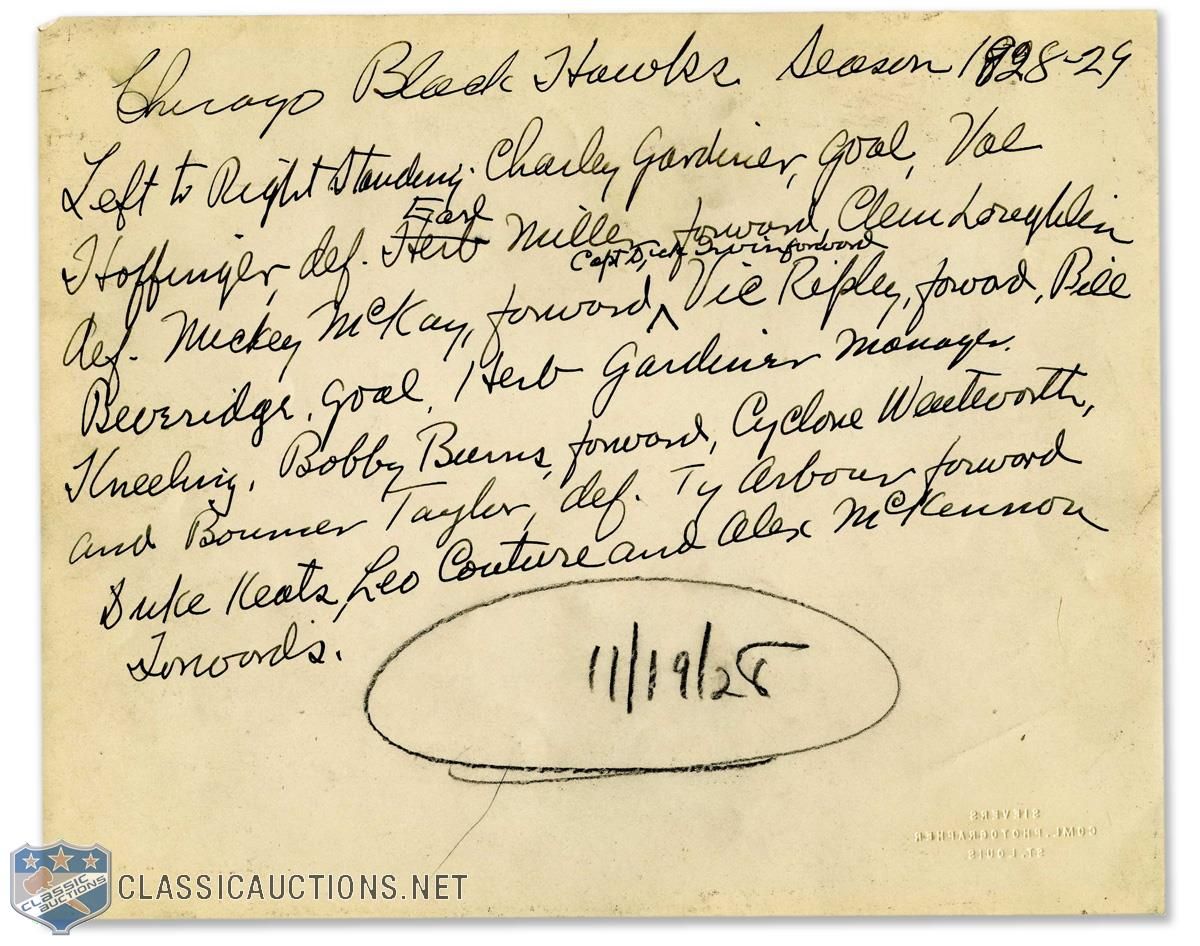 Chicago Black Hawks Season 1928-29
Left to Right Standing. Charley Gardiner, goal, Val
Earl
Hoffinger, def. Herb Miller forward, Clem Loughlin
Capt Dick Irvin forward
def. Mickey McKay, forward, ^ Vic Ripley, forward, Bill
Beveridge, goal, Herb Gardiner Manager.
Kneeling, Bobby Burns, forward, Cyclone Wentworth,
and Bouncer Taylor, def. Ty Arbour forward
Duke Keats, Leo Couture and Alex McKennon
Forwards.
11/19/28
SIEVERS
COML. PHOTOGRAPHER
ST. LOUIS
CLASSIC
AUCTIONS
CLASSICAUCTIONS.NET